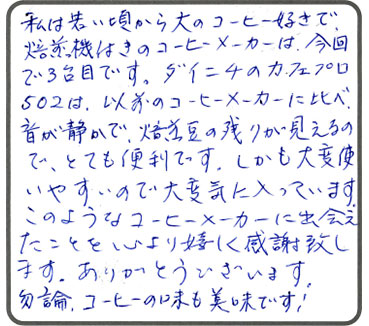 私は若い頃から大のコーヒー好きで
焙煎機つきのコーヒーメーカーは、今回
で3台目です。ダイニチのカフェプロ
502は、以前のコーヒーメーカーに比べ
音が静かで、焙煎豆の残りが見えるの
で、とても便利です。しかも大変使
いやすいので大変気に入っています。
このようなコーヒーメーカーに出会え
たことを心より嬉しく感謝致し
ます。ありがとうございます。
勿論、コーヒーの味も美味です!